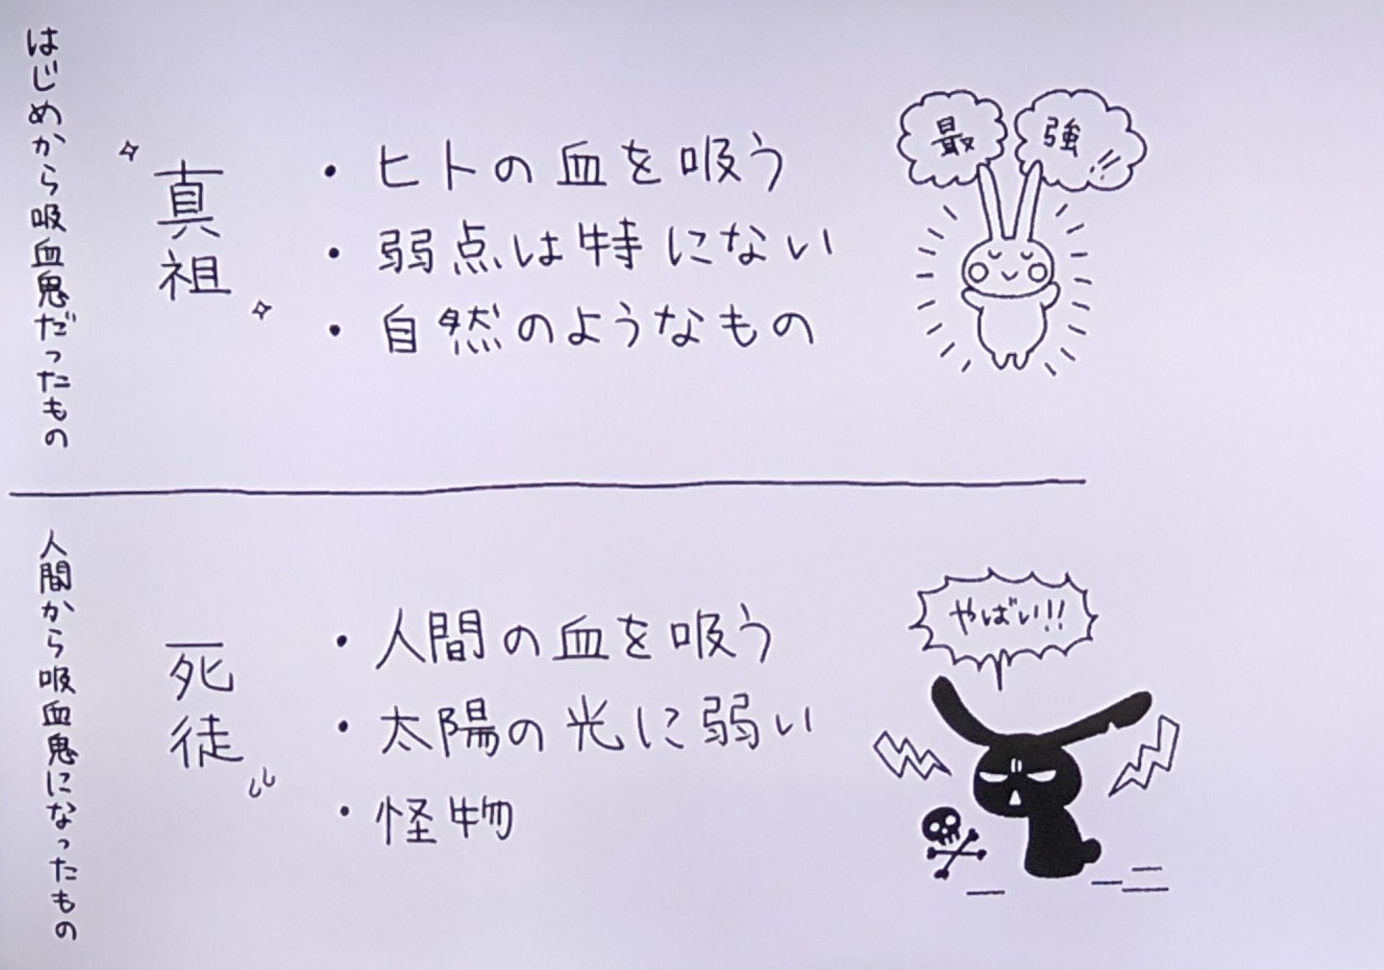 はじめから吸血鬼だったもの
真祖
・ヒトの血を吸う
・弱点は特にない
・自然のようなもの
最強
人間から吸血鬼になったもの
死徒
・人間の血を吸う
・太陽の光に弱い
・怪物
やばい!!